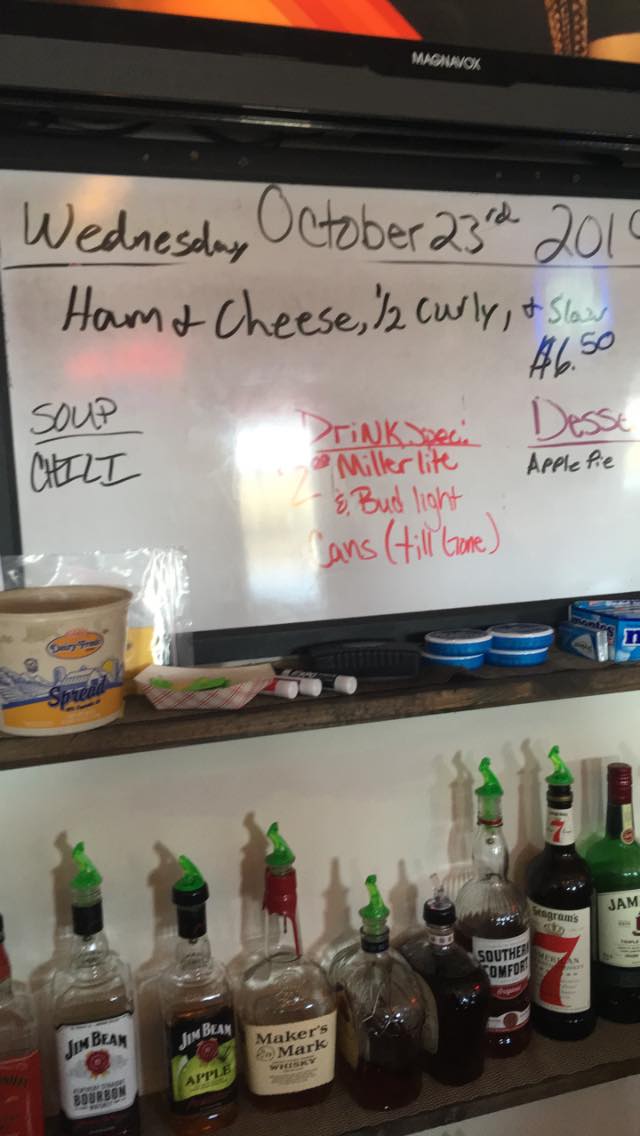 MAGNAVOX
Wednesday October 23rd 201
Ham & Cheese, 1/2 Curly, & Slaw
$6.50
SOUP
CHILI
Drink Spec.
2 Miller lite
& Bud light
Cans (till Gone)
Desse
Apple Pie
Spread
JIM BEAM
KENTUCKY STRAIGHT
BOURBON
WHISKEY
JIM BEAM
APPLE
Maker's
Mark
WHISKY
SOUTHERN
COMFORT
Original
7
Seagram's
7
AMERICAN
JAM
TRIPLE